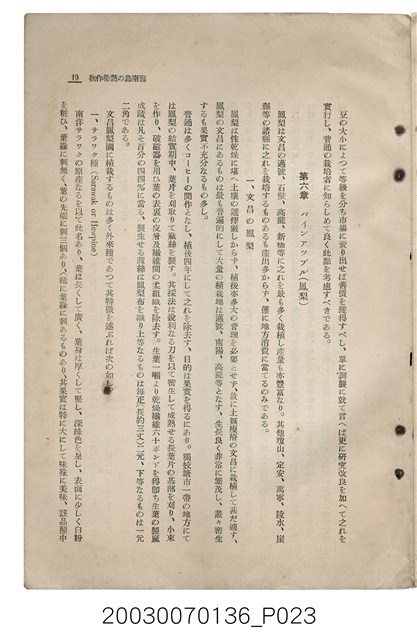 海南島の熱帶作物
19
豆の大小によつて等級を分ち市場に賣り出せば善價を獲得すべし、單に調製に就て言へば更に研究改良を加へてこれを
實行し、普通の栽培者に知らしめて良く此點を考慮すべきである。
第六章 パインアツプル(鳳梨)
鳳梨は文昌の邁號、石壁、高龍、新橋等にこれを最も多く栽植し產量も亦豐富なり。其他瓊山、定安、萬寧、陵水、崖
縣等の諸縣に之れを栽培するものあるも產出多からず、僅に地方消費に當てるのみである。
一、文昌の鳳梨
鳳梨は性乾燥に堪へ土壤の選擇嚴しからず、植後亦多大の管理を必要とせず、故に土質瘦瘠の文昌に栽植して甚だ適す、
鳳梨の文昌にあるものは最も普遍的にして大量の植栽地は邁號、南陽、高龍等となす、生長良く非常に繁茂し、叢々密生
するも果實不充分なるもの多し。
普通は多くコーヒーの間作となし、植後四年にして之れを除去す、目的は果實を得るにあり。獨蛟塘市一帶の地方にて
は鳳梨の結實期中、葉片を刈取りて纖絲を製す。其採法は銳利なる刀を以て密生して成熟せる長葉片の基部を刈り、小束
を作り、破磁器を用ひ葉の表裏の皮層及纖維間の柔組織を除去す。生葉一噸より乾燥纖維六十ポンドを得即ち生葉の製麻
成績は凡そ百分の四四％に當る、製生せる麻絲は鳳梨布を織り上等なるものは每疋(長約三丈)二元、下等なるものは一元
二角である。
文昌鳳梨園に植栽するものは多く外來種であつて其特徵を述ぶれば次の如し
一、サラワク種(Sarawak or Hoopine)
南洋サラワクの原產なるを以て此名あり、葉は長くして廣く、葉身は厚くして堅し、深綠色を呈し、表面に少しく白粉
を粧ひ、葉緣に刺無く、葉の先端に刺三個あり、稀に葉緣に刺あるものあり、其果實は特に大にして味殊に美味、該品種中
20030070136_P023